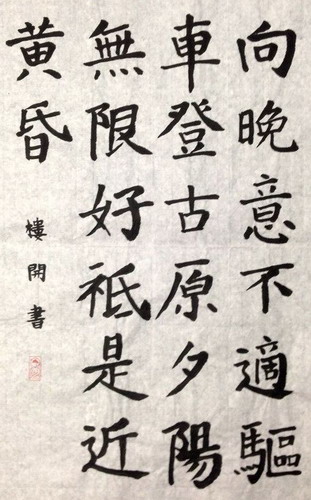 向晚意不適驅
車登古原夕陽
無限好祗是近
黄昏
樓開書